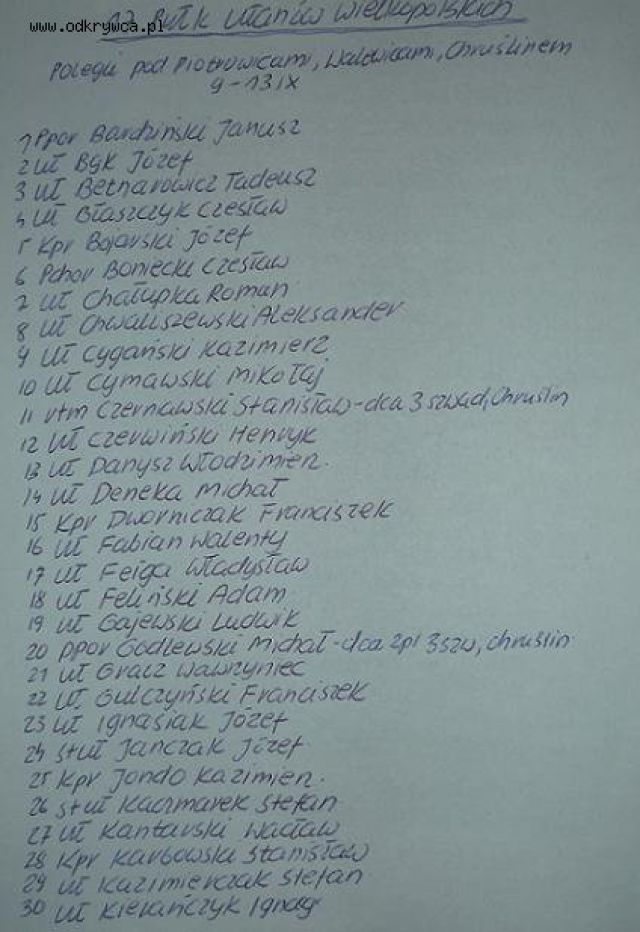 www.odkrywca.pl
17 Pułk Ułanów Wielkopolskich
Polegli pod Piotrowicami, Walewicami, Chruślinem
9-13 IX
1 Ppor Bardziński Janusz
2 Uł Bąk Józef
3 Uł Betnarowicz Tadeusz
4 Uł Błaszczyk Czesław
5 Kpr Bojarski Józef
6 Pchor Boniecki Czesław
7 Uł Chałupka Roman
8 Uł Chwaliszewski Aleksander
9 Uł Cygański Kazimierz
10 Uł Cymawski Mikołaj
11 rtm Czernawski Stanisław-dca 3 szwad, Chruślin
12 Uł Czerwiński Henryk
13 Uł Danysz Włodzimierz
14 Uł Deneka Michał
15 Kpr Dworniczak Franciszek
16 Uł Fabian Walenty
17 Uł Feiga Władysław
18 Uł Feliński Adam
19 Uł Gajewski Ludwik
20 ppor Godlewski Michał-dca 2pl 3szw, Chruślin
21 Uł Gracz Wawrzyniec
22 Uł Gulczyński Franciszek
23 Uł Ignasiak Józef
24 st uł Janczak Józef
25 Kpr Jondo Kazimierz
26 st uł Kaczmarek Stefan
27 Uł Kantarski Wacław
28 Kpr Karbowski Stanisław
29 Uł Kazimierczak Stefan
30 Uł Kierańczyk Ignacy